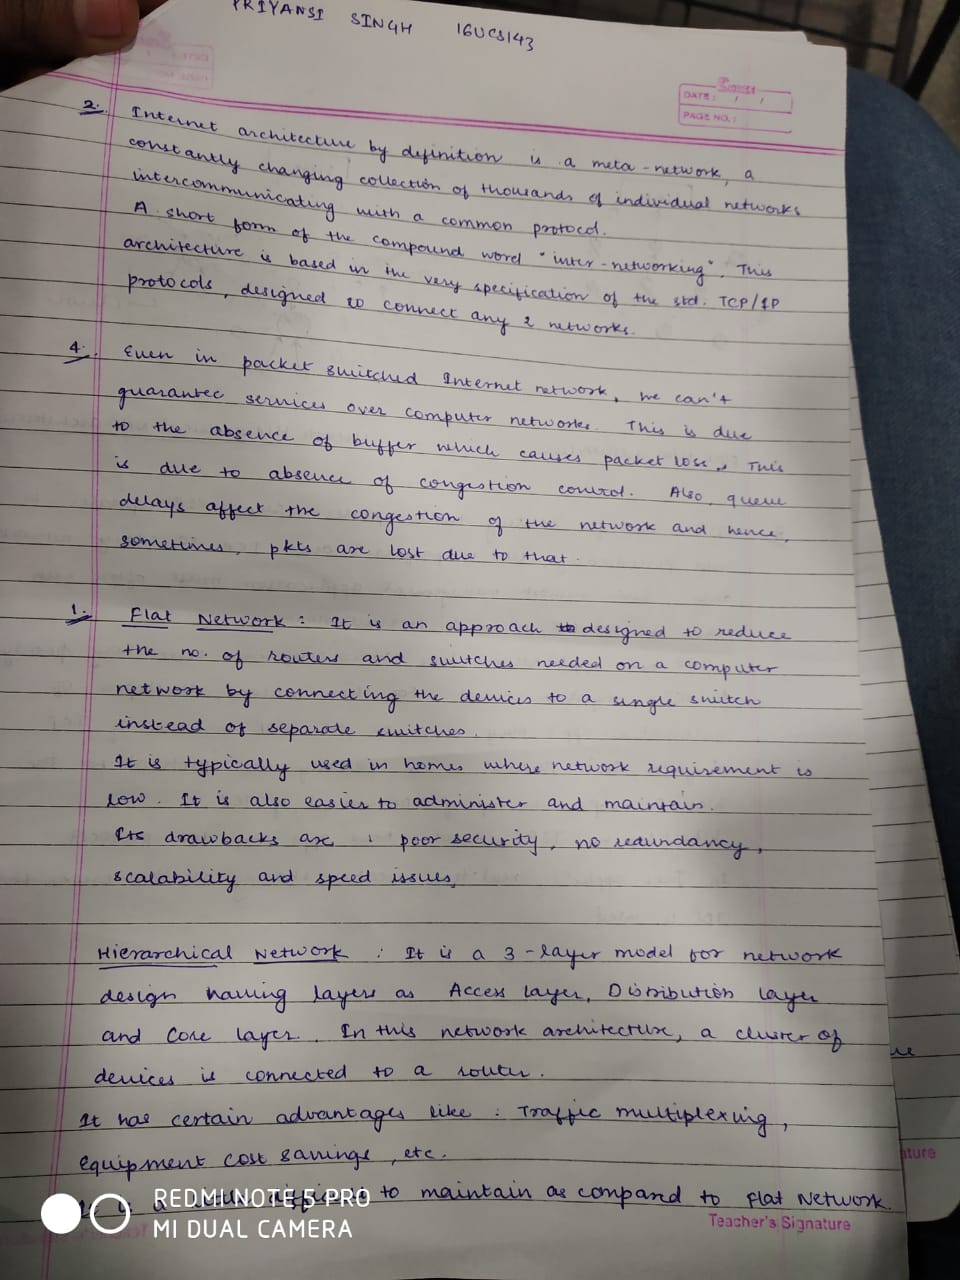 PRIYANSI SINGH 16UCS143
DATE: / /
PAGE NO.:
2. Internet architecture by definition is a meta-network, a
constantly changing collection of thousands of individual networks
intercommunicating with a common protocol.
A short form of the compound word "inter-networking". This
architecture is based in the very specification of the std. TCP/IP
protocols, designed to connect any 2 networks.
4. Even in packet switched Internet network, we can't
guarantee services over computer networks. This is due
to the absence of buffer which causes packet loss. This
is due to absence of congestion control. Also, queue
delays affect the congestion of the network and hence,
sometimes, pkts are lost due to that.
1. Flat Network: It is an approach designed to reduce
the no. of routers and switches needed on a computer
network by connecting the devices to a single switch
instead of separate switches.
It is typically used in homes where network requirement is
low. It is also easier to administer and maintain.
Its drawbacks are : poor security, no redundancy,
scalability and speed issues.
Hierarchical Network : It is a 3-layer model for network
design having layers as Access layer, Distribution layer
and Core layer. In this network architecture, a cluster of
devices is connected to a router.
It has certain advantages like : Traffic multiplexing,
equipment cost savings, etc.
to maintain as compared to Flat Network.
REDMI NOTE 5 PRO
MI DUAL CAMERA
Teacher's Signature